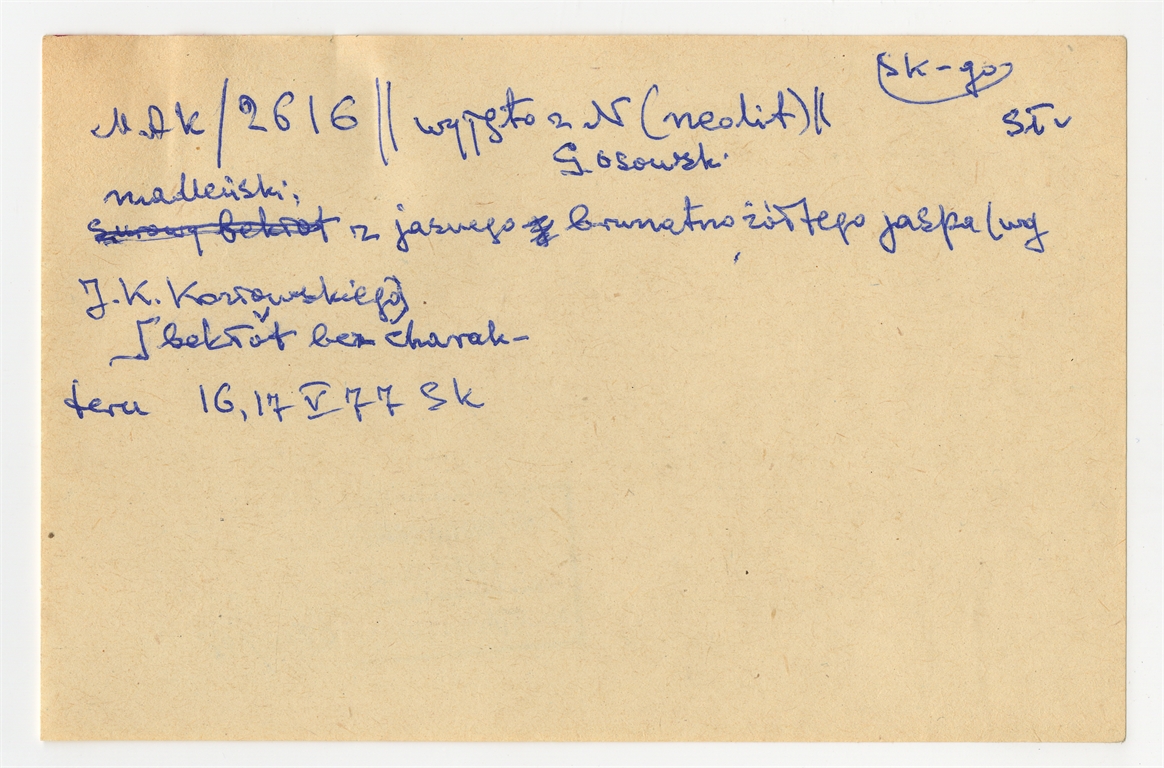 Sk-go
M.A.K/2616 || wyjęto z N (neolit) ||
St.
G. Osowsk.
madleński;
surowy bekłót z jasnego brunatno żółtego jaspa (wg
J.K. Kozłowskiego)
bekłót bez charak-
teru 16,17 V 77 Sk